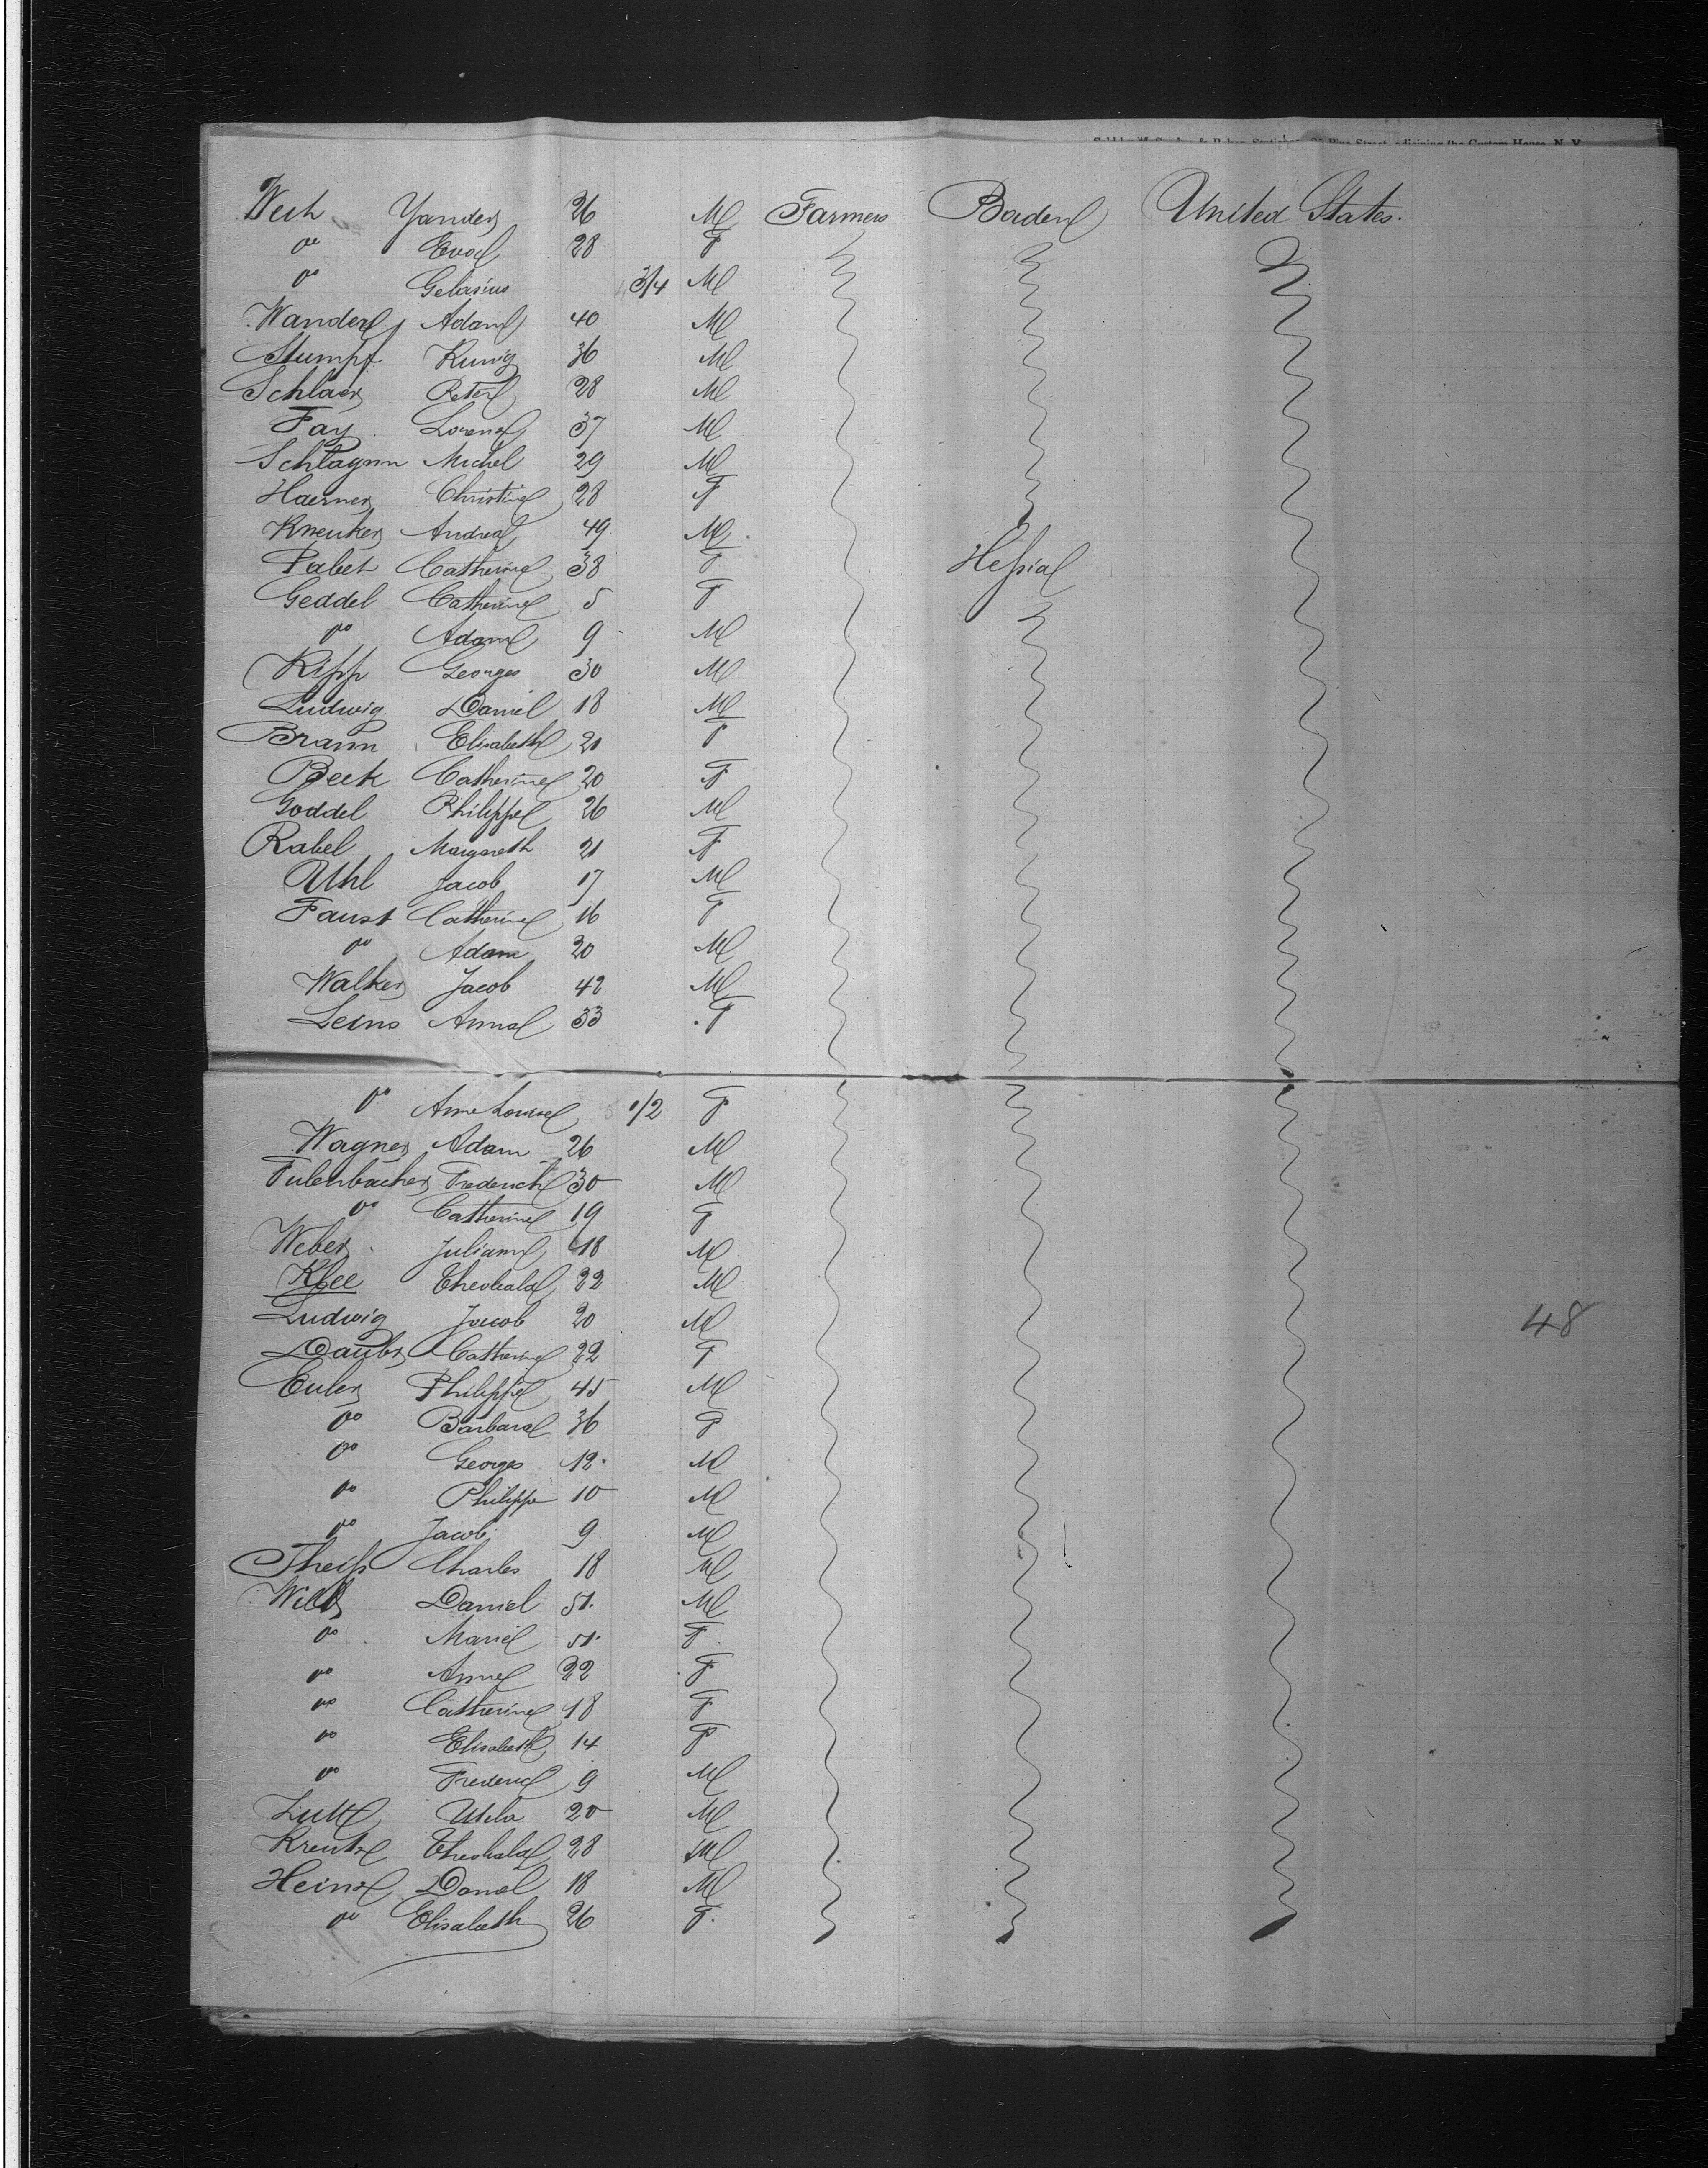 Wech Yander 26 M Farmers Baden United States.
do Eva 28 F
do Gelasius 3/4 M
Wander Adam 40 M
Stumpf Kunig 36 M
Schlaer Peter 28 M
Fay Lorenz 37 M
Schlagmn Michel 29 M
Haerner Christine 28 F
Kneuker Andrea 49 M
Pabet Catherine 38 F Hessia
Geddel Catherine 5 F
do Adam 9 M
Kipp Georges 30 M
Ludwig Daniel 18 M
Brann Elisabeth 21 F
Beek Catherine 20 F
Goddel Philippe 26 M
Rabel Margareth 21 F
Uhl Jacob 17 M
Faust Catherine 16 F
do Adam 20 M
Walker Jacob 42 M
Leins Anna 33 F
do Anne Louise 1/2 F
Wagner Adam 26 M
Tulenbacher Frederick 30 M
do Catherine 19 F
Weber Juliam 18 M
Klee Theobald 22 M
Ludwig Jacob 20 M 48
Daubr Catherine 22 F
Euler Philippe 45 M
do Barbara 36 F
do Georges 12 M
do Philippe 10 M
do Jacob 9 M
Theiss Charles 18 M
Will Daniel 51 M
do Marie 51 F
do Anne 22 F
do Catherine 18 F
do Elisabeth 14 F
do Frederic 9 M
20 M
Kreutze Theobald 28 M
Heinz Daniel 18 M
do Elisabeth 26 F